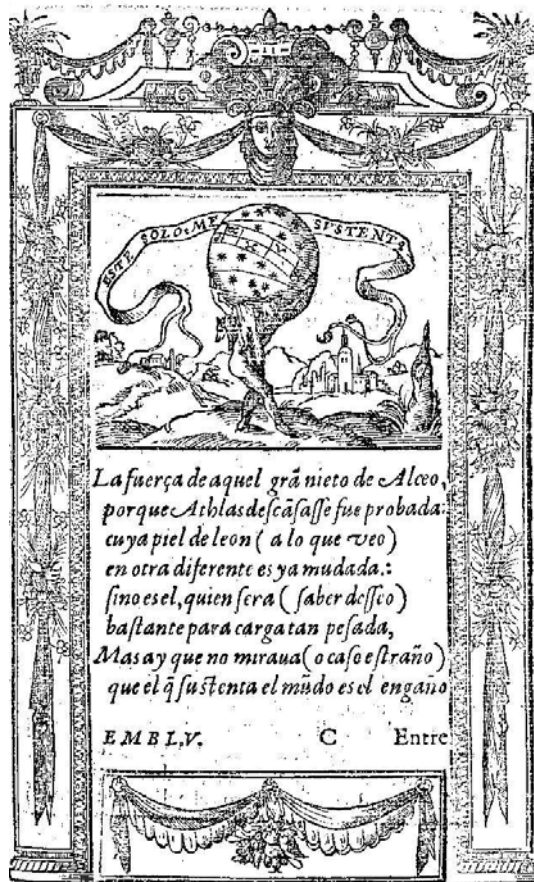 11
ESTE SOLO ME SVSTENTA
La fuerça de aquel grã nieto de Alceo,
porque Athlas descãsasse fue probada:
cuya piel de leon ( a lo que veo )
en otra diferente es ya mudada.:
sino es el, quien sera ( saber desseo )
bastante para carga tan pesada,
Mas ay que no miraua ( o caso estraño )
que el q̃ sustenta el mũdo es el engaño
EMBL.V. C Entre